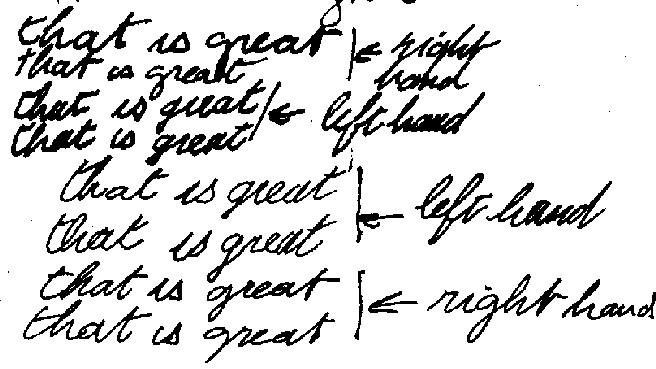 that is great ← right
that is great hand
that is great ← left hand
that is great
that is great
that is great ← left hand
that is great
that is great ← right hand